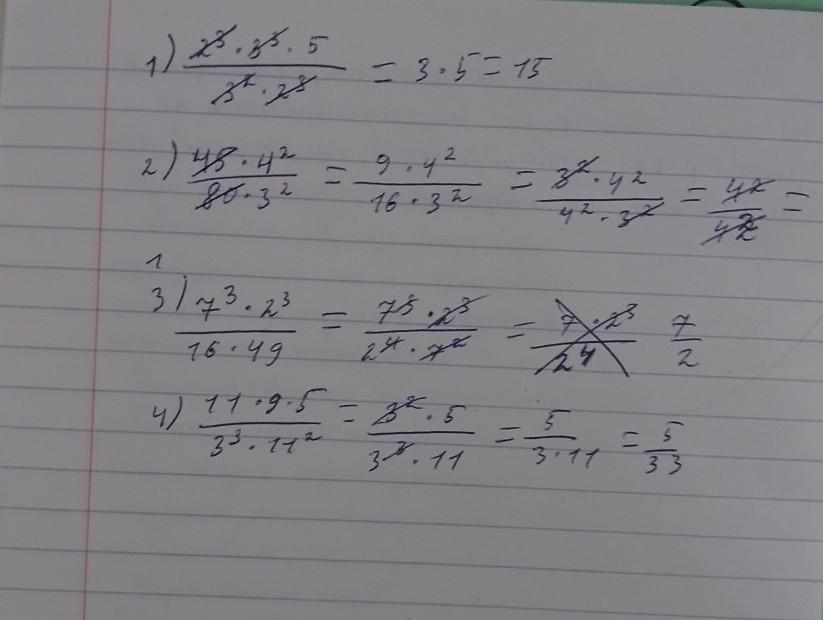 1) 2³·3³·5 / 3²·2³ = 3·5 = 15
2) 45·4² / 80·3² = 9·4² / 16·3² = 3²·4² / 4²·3² = 4² / 4² =
1
3) 7³·2³ / 16·49 = 7³·2³ / 2⁴·7² = 7·2³ / 2⁴ 7/2
4) 11·9·5 / 3³·11² = 3²·5 / 3³·11 = 5 / 3·11 = 5/33